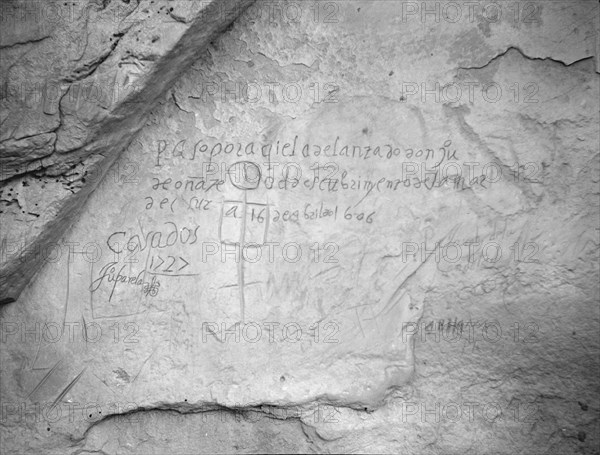 paso por aqi el adelantado don ju
de oñate al descubrimento de la mar
del sur a 16 de abril del 1606
Casados
1727